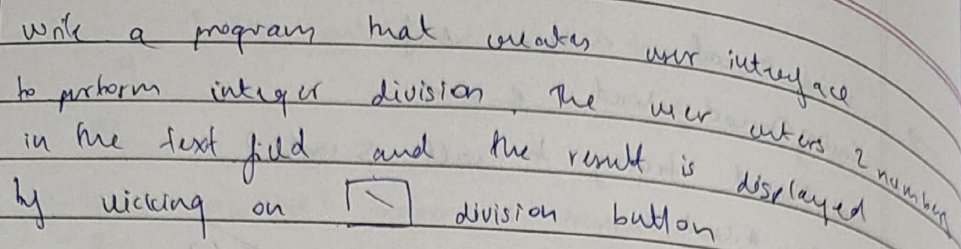 write a program that creates user interface
to perform integer division, The user enters 2 number
in the text field and the result is displayed
by clicking on [\] division button